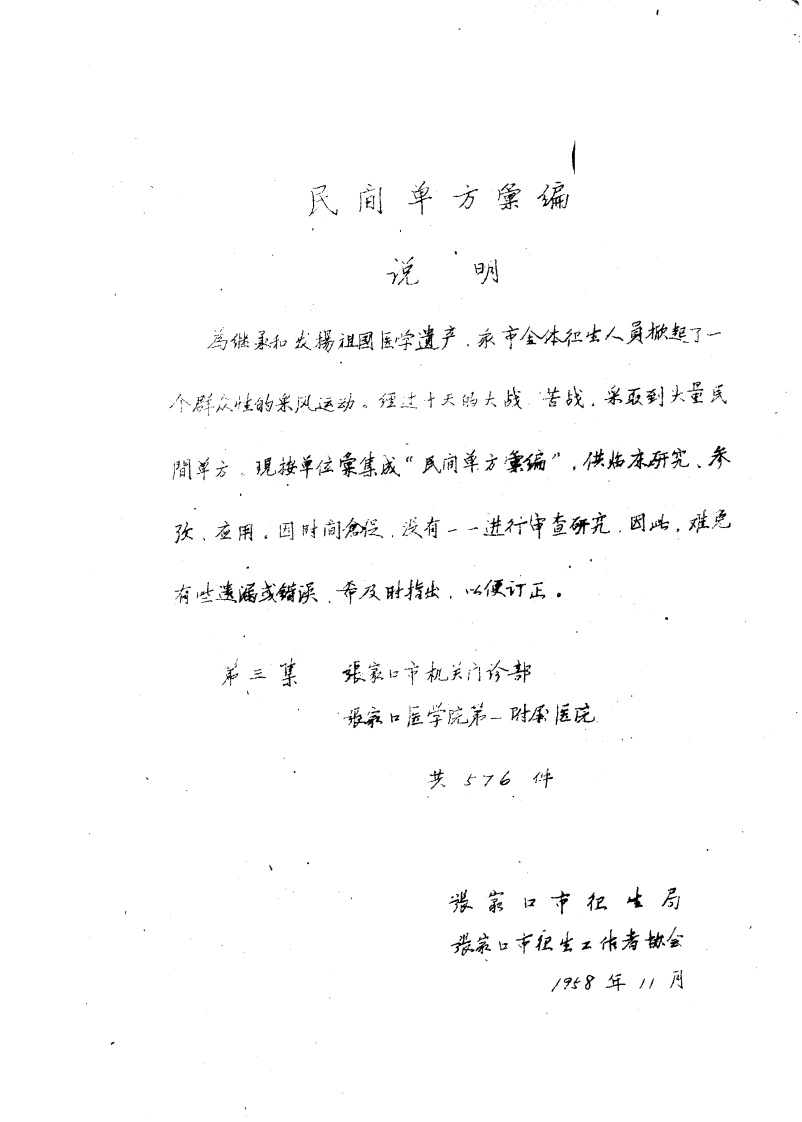 民间单方彙编
说明
為继承和发揚祖國医学遗产，我市全体衛生人员掀起了一
个群众性的采风运动。经过十天的大战、苦战，采取到大量民
間单方。現按单位彙集成“民间单方彙编”，供临床研究、参
攷、应用，因时间倉促，没有一一进行审查研究，因此，难免
有些遗漏或错误，希及时指出，以便订正。
第三集 張家口市机关门诊部
張家口医学院第一附属医院
共576件
張家口市衛生局
張家口市衛生工作者协会
1958年11月